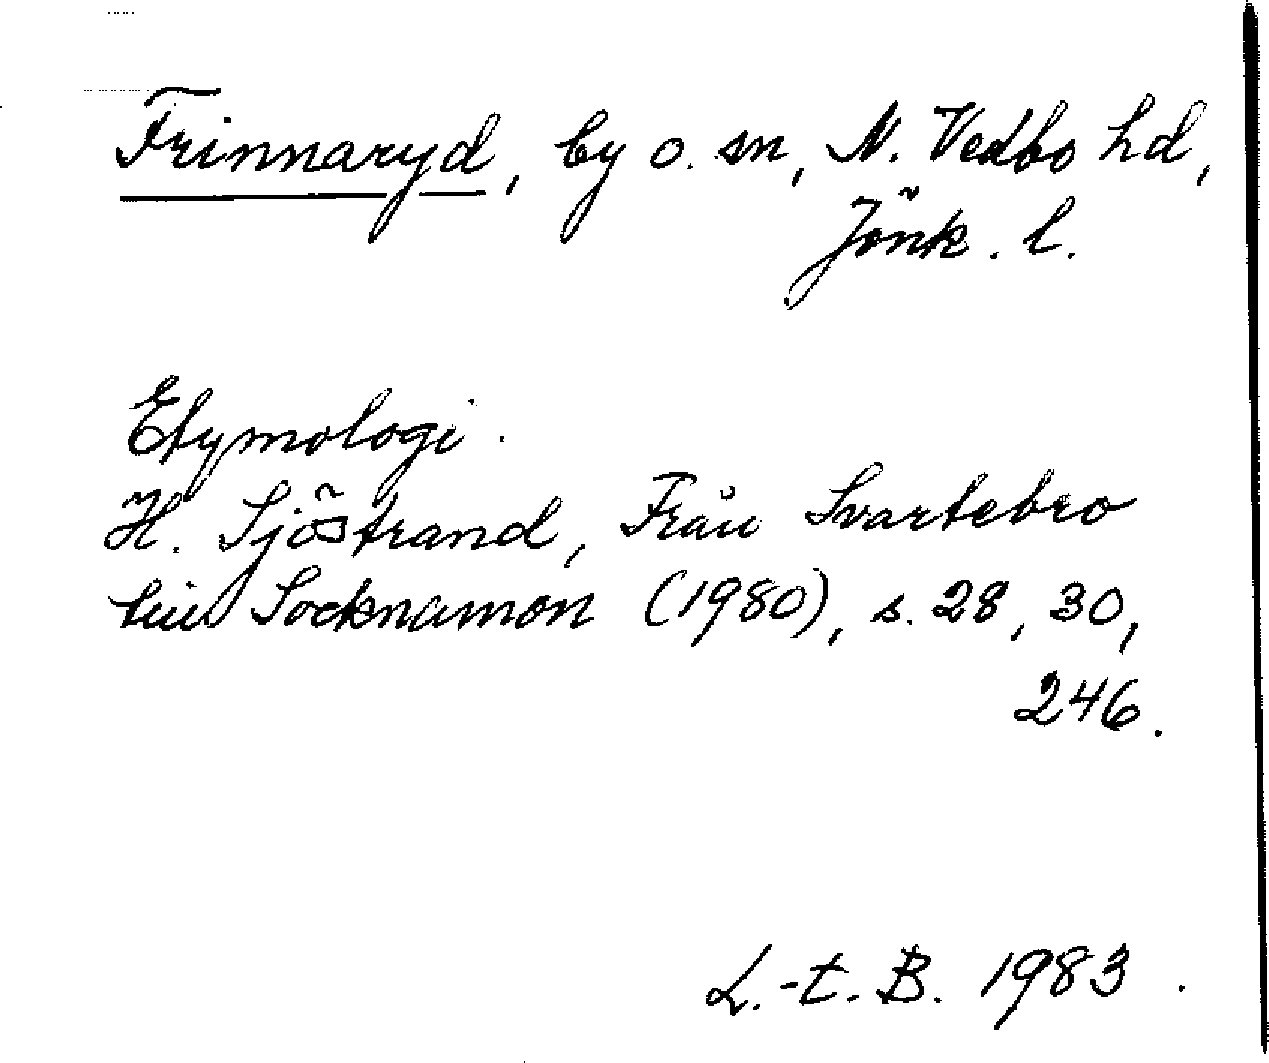 Frinnaryd, by o. sn, N. Vedbo hd,
Jönk. l.
Etymologi.
H. Sjöstrand, Från Svartebro
till Socknamon (1980), s. 28, 30,
246.
L.-t. B. 1983.